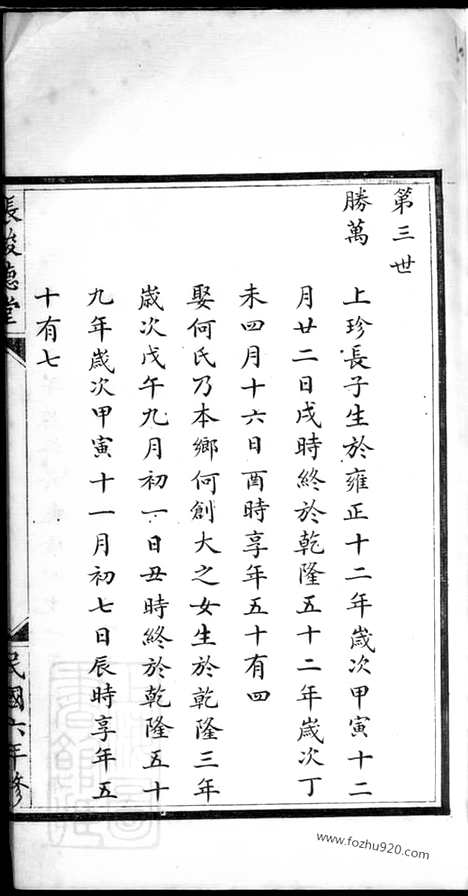 第三世
勝萬
上珍長子生於雍正十二年歲次甲寅十二
月廿二日戌時終於乾隆五十二年歲次丁
未四月十六日酉時享年五十有四
娶何氏乃本鄉何創大之女生於乾隆三年
歲次戊午九月初一日丑時終於乾隆五十
九年歲次甲寅十一月初七日辰時享年五
十有七
張 德堂
民國六年修
www.fozhu920.com